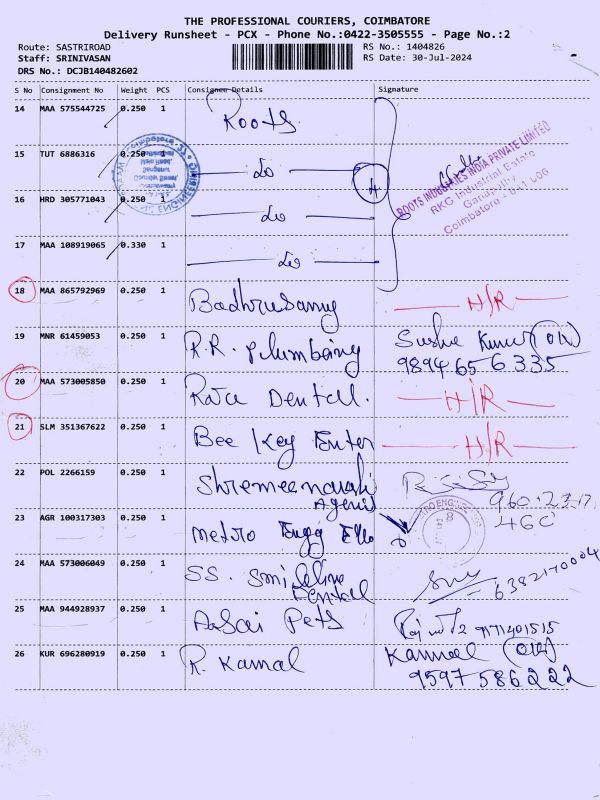 THE PROFESSIONAL COURIERS, COIMBATORE
Delivery Runsheet - PCX - Phone No.:0422-3505555 - Page No.:2
Route: SASTRIROAD
RS No.: 1404826
Staff: SRINIVASAN
RS Date: 30-Jul-2024
DRS No.: DCJB140482602
S No Consignment No Weight PCS Consignee Details Signature
14 MAA 575544725 0.250 1 Roots
15 TUT 6886316 0.250 1 do
4
ROOTS INDUSTRIES INDIA PRIVATE LIMITED
RKG Industrial Estate
Ganapathy
Coimbatore - 641 006
16 HRD 305771043 0.250 1 do
17 MAA 108919065 0.330 1 do
18 MAA 865792969 0.250 1 Badhrusamy H/R
19 MNR 61459053 0.250 1 R.R. plumbing
9894656335
20 MAA 573005850 0.250 1 Raja Dental. H/R
21 SLM 351367622 0.250 1 Bee Key Enter H/R
22 POL 2266159 0.250 1
23 AGR 100317303 0.250 1 Metro Engg
24 MAA 573006049 0.250 1 SS. Smileline
Dental
6382170004
25 MAA 944928937 0.250 1 Aasai Pets
26 KUR 696280919 0.250 1 R. Kamal
9597586222